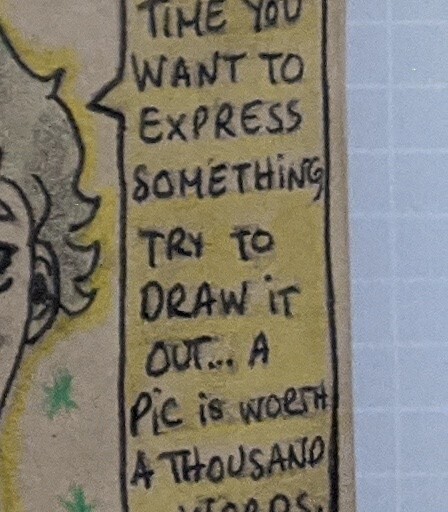 TIME YOU
WANT TO
EXPRESS
SOMETHING
TRY TO
DRAW iT
OUT... A
PiC iS WORTH
A THOUSAND
WORDS.